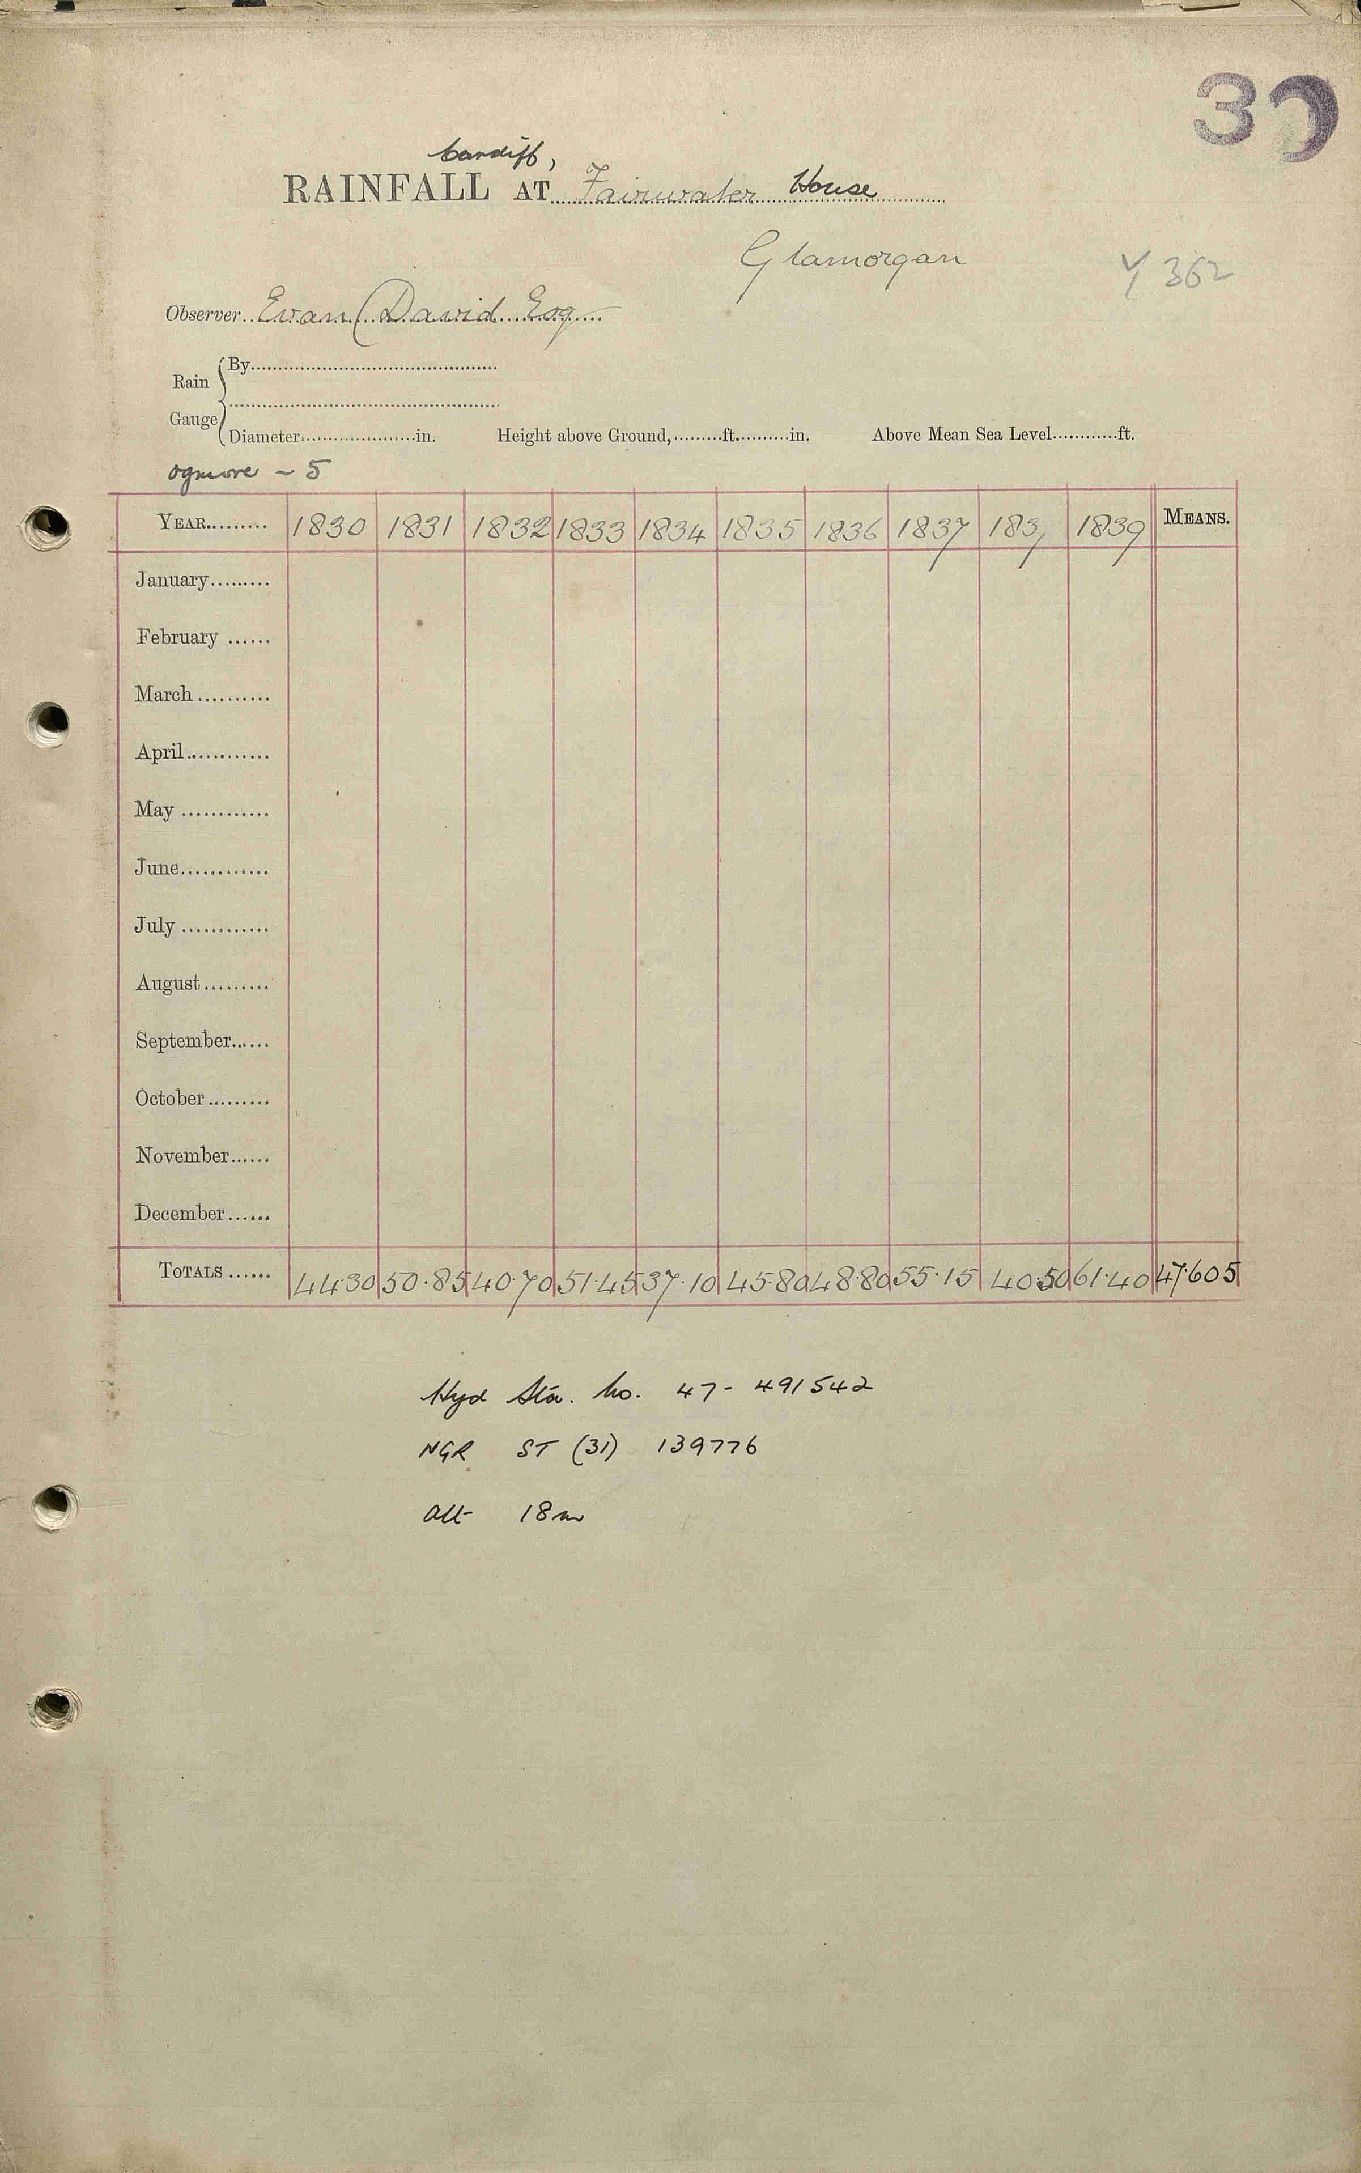 30
Cardiff,
RAINFALL AT Fairwater House
Glamorgan
Y 362
Observer Evan David Esq
Rain Gauge
By
Diameter in. Height above Ground, ft. in. Above Mean Sea Level ft.
Ogmore - 5
YEAR 1830 1831 1832 1833 1834 1835 1836 1837 183, 1839 MEANS.
January
February
March
April
May
June
July
August
September
October
November
December
TOTALS 44.30 50.85 40.70 51.45 37.10 45.80 48.80 55.15 40.50 61.40 47.605
Hyd Sta. No. 47-491542
NGR ST (31) 139776
Alt 18m